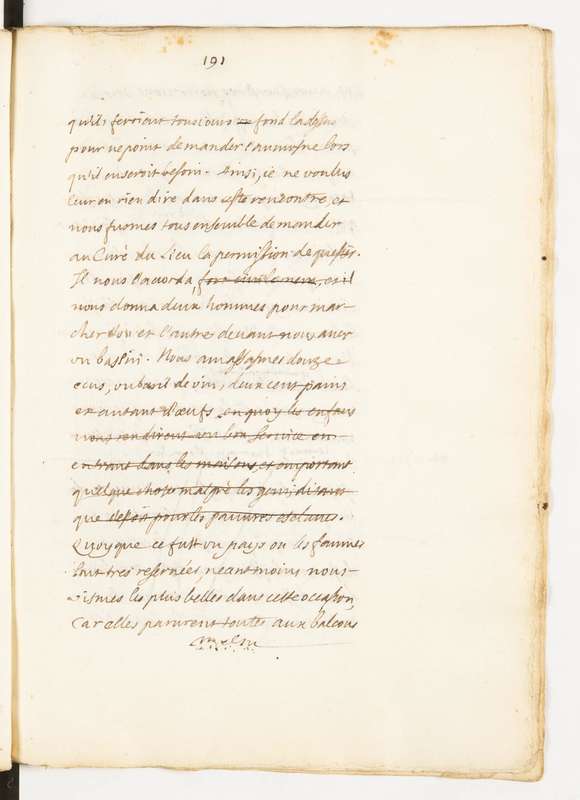 191
qu'ils feroient tousiours fond la dessus
pour ne point demander l'aumosne lors
qu'il en seroit besoin. Ainsi, ie ne voulus
leur en rien dire dans ceste rencontre, et
nous fusmes tous ensemble demander
au Curé du Lieu la permission de quester.
Il nous l'acorda, fort civilement, et il
nous donna deux hommes pour mar-
cher l'un et l'autre devant nous avec
un bassin. Nous amassames douze
ecus, un baril de vin, deux cent pains
et autant d'œufs, en quoy les enfans
nous rendirent un bon service en
entrant dans les maisons, et emportant
quelque chose malgré les gens, disans
que c'estoit pour les pauvres esclaves.
Quoyque ce fust un pays ou les femmes
sont tres reservées, neantmoins nous
vismes les plus belles dans cette occasion,
car elles parurent toutes aux balcons